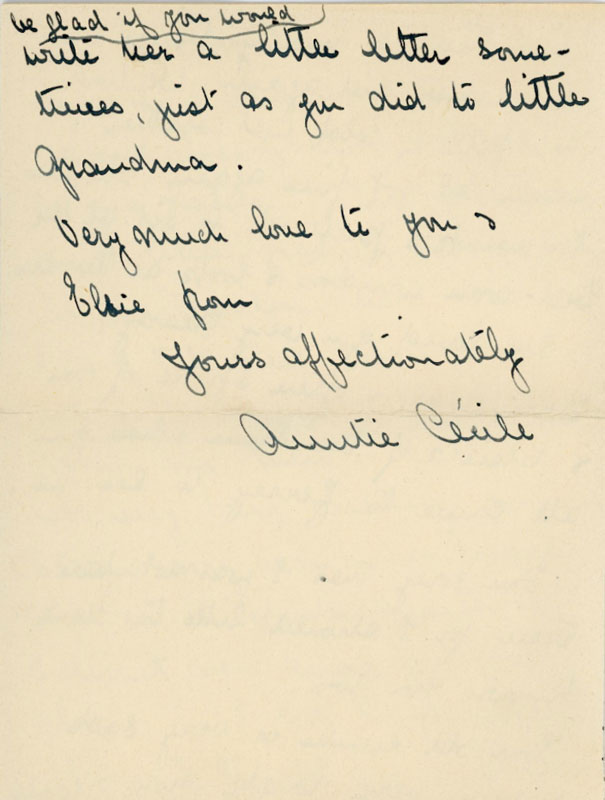 be glad if you would
write her a little letter some-
times, just as you did to little
Grandma.
Very much love to you &
Elsie from
Yours affectionately
Auntie Cécile